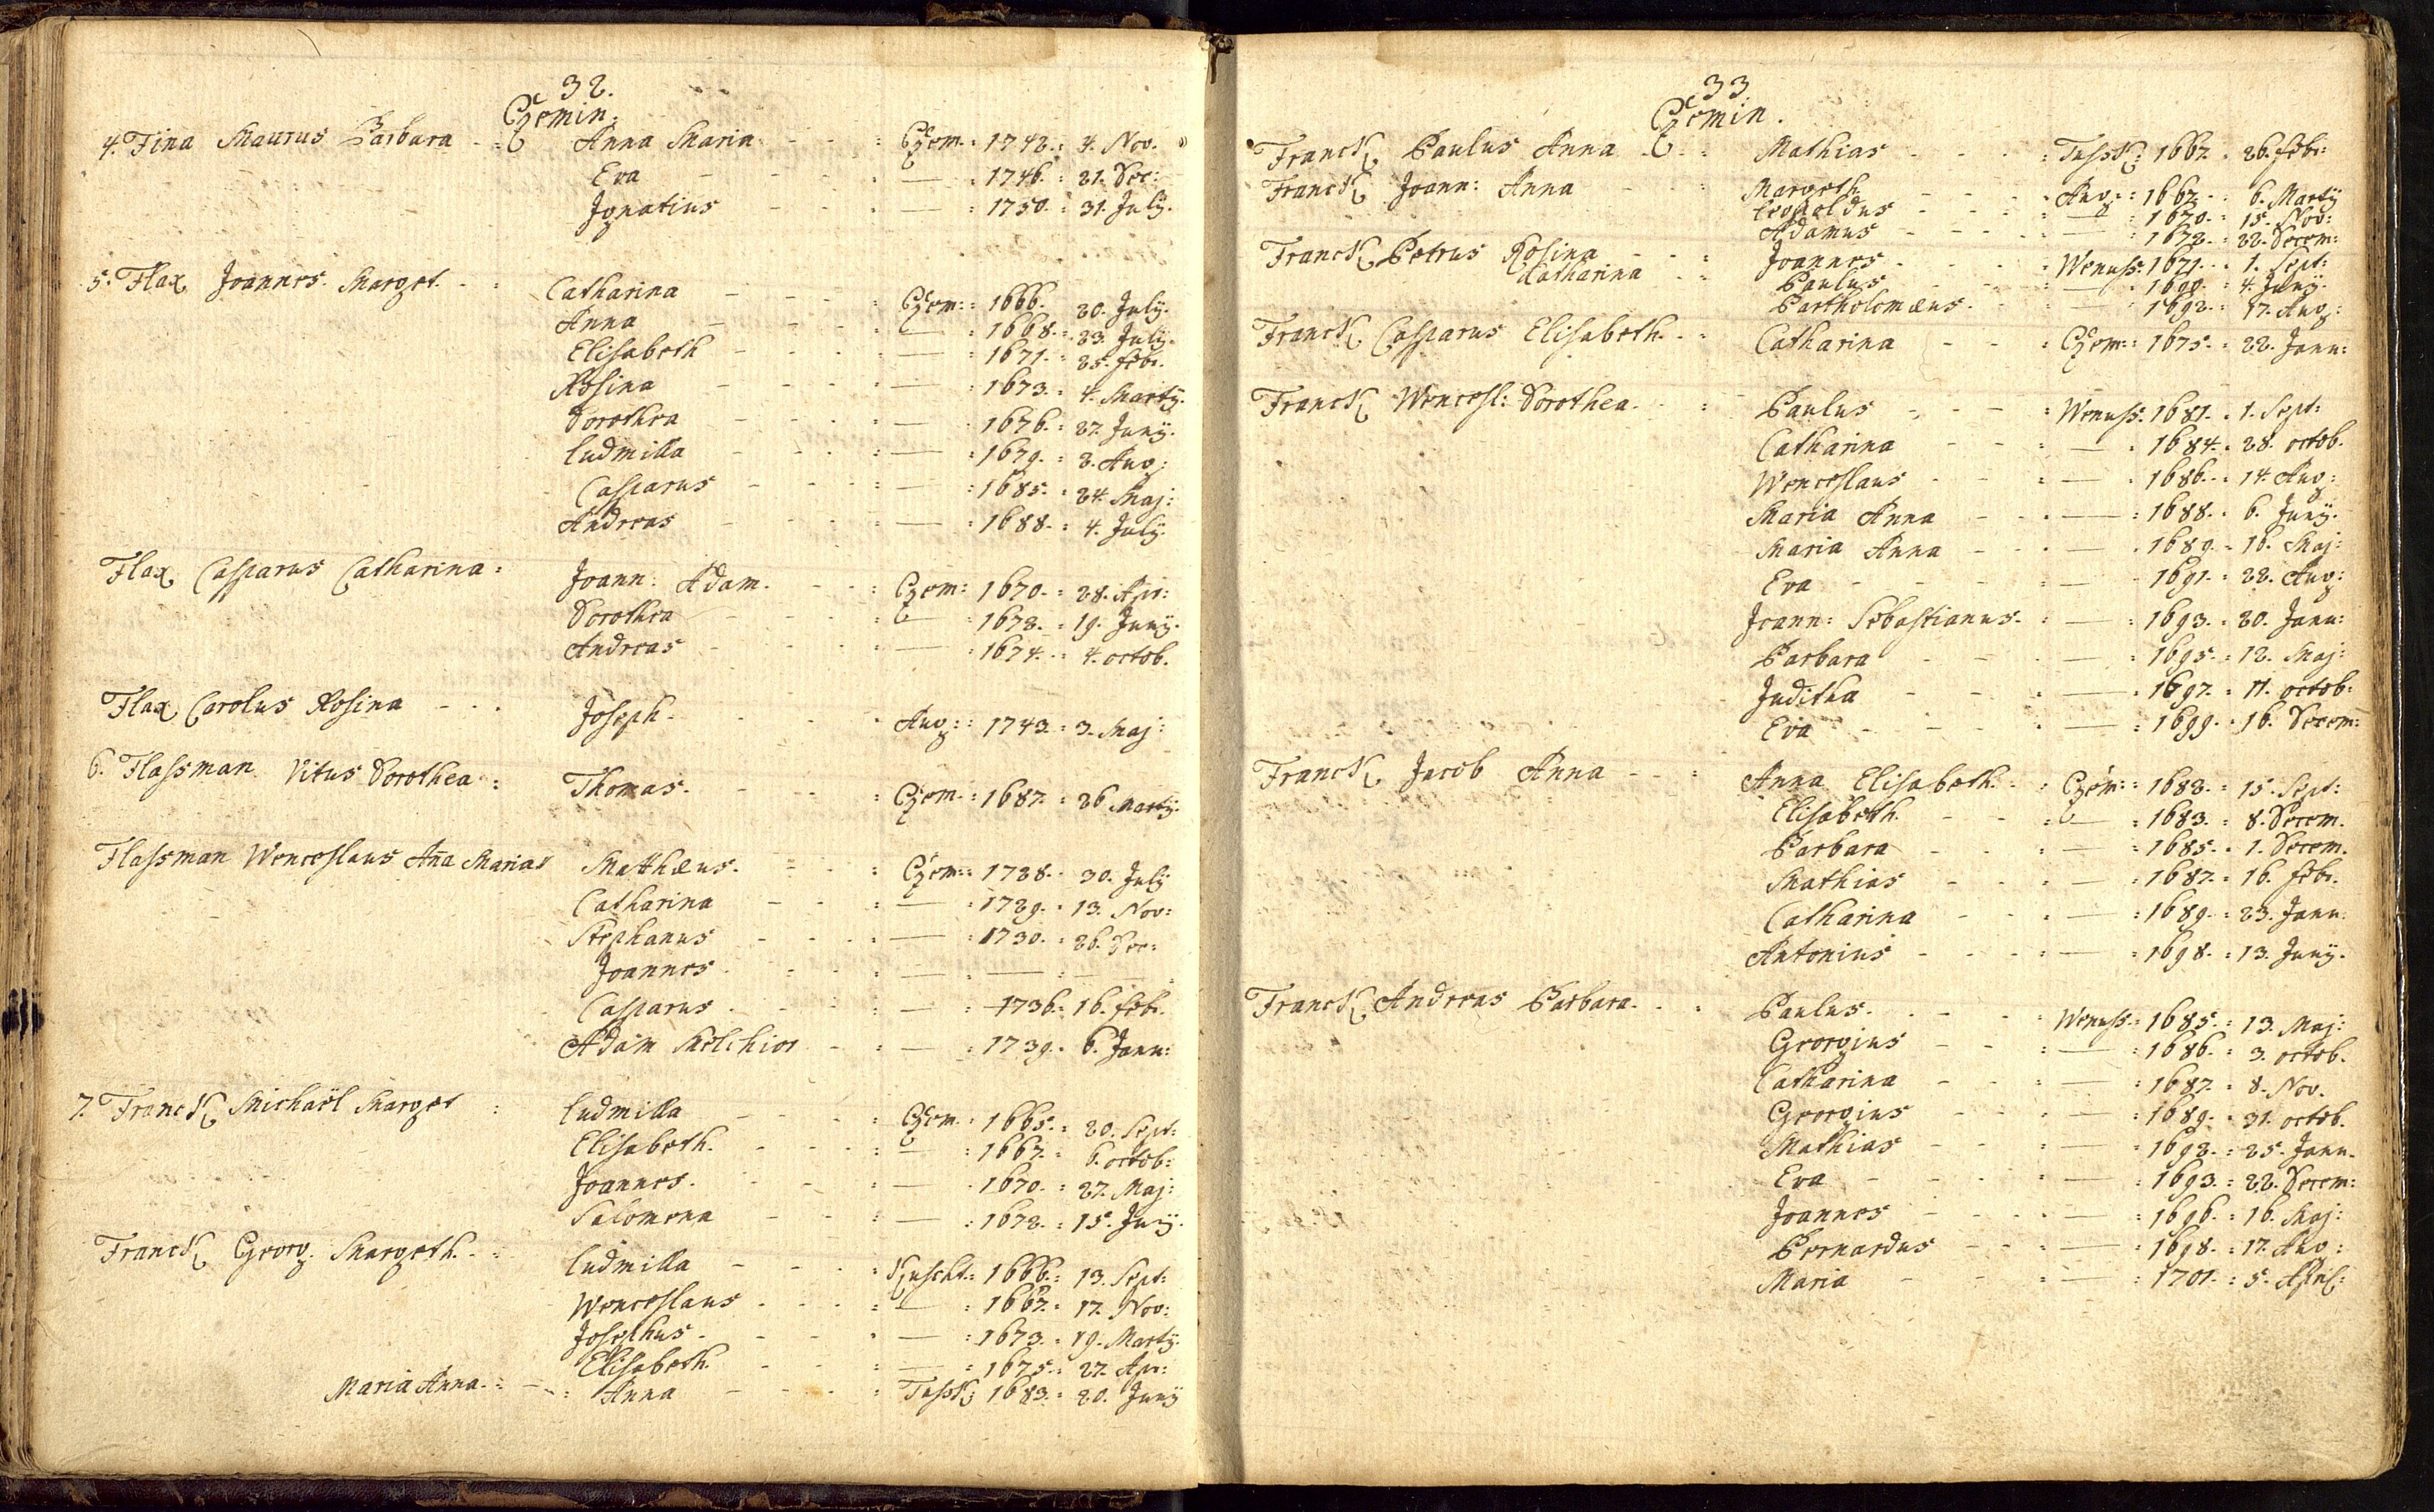 32.
Czemin.
4. Fina Maurus Barbara - : Anna Maria - - : Czem: 1742. : 4. Nov.
Eva - - - : — : 1746. : 21. Dec:
Ignatius - - : — : 1750. : 31. July.
5. Flax Joannes Marget. - : Catharina - - - : Czem: 1666. 20. July.
Anna - - - : — : 1668. : 23. July.
Elisabeth - - : — : 1671. : 25. febr.
Rosina - - - : — : 1673. : 4. Marty.
Dorothea - - : — : 1676. : 27. Juny.
Ludmilla - - : — : 1679. : 2. Aug:
Casparus - - : — : 1685. : 24. Maj:
Andreas - - : — : 1688. : 4. July.
Flax Casparus Catharina : Joann: Adam. - - : Czem: 1670. : 28. Apr:
Dorothea - - : — : 1672. : 19. Juny.
Andreas - - : — : 1674. : 4. octob.
Flax Carolus Rosina - - Joseph. - - . Aug: : 1743. : 3. Maj:
6. Flassman Vitus Dorothea : Thomas. - - : Czem. : 1687. : 26 Marty.
Flassman Wenceslaus Aña Maria Matthæus. - - : Czem: 1728. 30. July
Catharina - - : — : 1729. : 13. Nov:
Stephanus - - : — : 1730. : 26. Dec:
Joannes - - : — : — : —
Casparus . - - : — : 1736. : 16. febr.
Adam Melchior - : — : 1739. 6. Janu:
7. Franck Michaël Marget : Ludmilla - - : Czem. : 1665. : 20. Sept:
Elisabeth. - - : — : 1667. : 6. octob:
Joannes. - - : — : 1670. : 27. Maj:
Salomena - - : — : 1672. : 15. Juny.
Franck Georg. Margeth. - : Ludmilla - - : Kuscht. : 1666. : 13. Sept:
Wenceslaus - - : — : 1667. : 17. Nov:
Josephus. - - : — : 1673. : 19. Marty.
Elisabeth - - : — : 1675. : 27. Apr:
Maria Anna. : - : Anna - - : Tussk: 1683. : 20. Juny
33
Czemin.
Franck Paulus Anna - : Mathias - - : Tussk: 1667. 26. febr:
Franck Joann: Anna - : Margeth - - : Aug: : 1667. : 6. Marty
Leopoldus - - : — : 1670. : 15. Nov:
Adamus - - : — : 1672. : 22. Decem:
Franck Petrus Rosina - : Joannes - - : Wenuss: 1671. : 1. Sept:
Catharina - : Paulus - - : — : 1690. : 4. Juny.
Bartholomæus. - : — : 1692. : 17. Aug:
Franck Casparus Elisabeth. - : Catharina - - : Czem: : 1675. : 22. Janu:
Franck Wencesl: Dorothea. - : Paulus - - : Wenuss: 1681. : 1. Sept:
Catharina - - : — : 1684. : 28. octob.
Wenceslaus - - : — : 1686. : 14. Aug:
Maria Anna - : — : 1688. : 6. Juny.
Maria Anna - : — : 1689. : 16. Maj:
Eva - - - : — : 1691. : 22. Aug:
Joann: Sebastianus. : — : 1693. : 20. Janu:
Barbara - - : — : 1695. : 12. Maj:
Juditha - - : — : 1697. : 11. octob:
Eva - - - : — : 1699. : 16. Decem:
Franck Jacob Anna - - : Anna Elisabeth. : Czem: : 1682. : 15. Sept:
Elisabeth - - : — : 1683. : 8. Decem.
Barbara - - : — : 1685. : 1. Decem.
Mathias - - : — : 1687. : 16. febr.
Catharina - - : — : 1689. : 23. Janu.
Antonius - - : — : 1698. : 13. Juny.
Franck Andreas Barbara. - : Paulus. - - : Wenuss: 1685. : 13. Maj:
Georgius - - : — : 1686. : 3. octob.
Catharina - - : — : 1687. : 8. Nov.
Georgius - - : — : 1689. 31. octob.
Mathias - - : — : 1692. : 25. Janu.
Eva - - - : — : 1693. : 22. Decem:
Joannes - - : — : 1696. : 16. Maj:
Bernardus - - : — : 1698. : 17. Aug:
Maria - - : — : 1701. : 5. Apr: